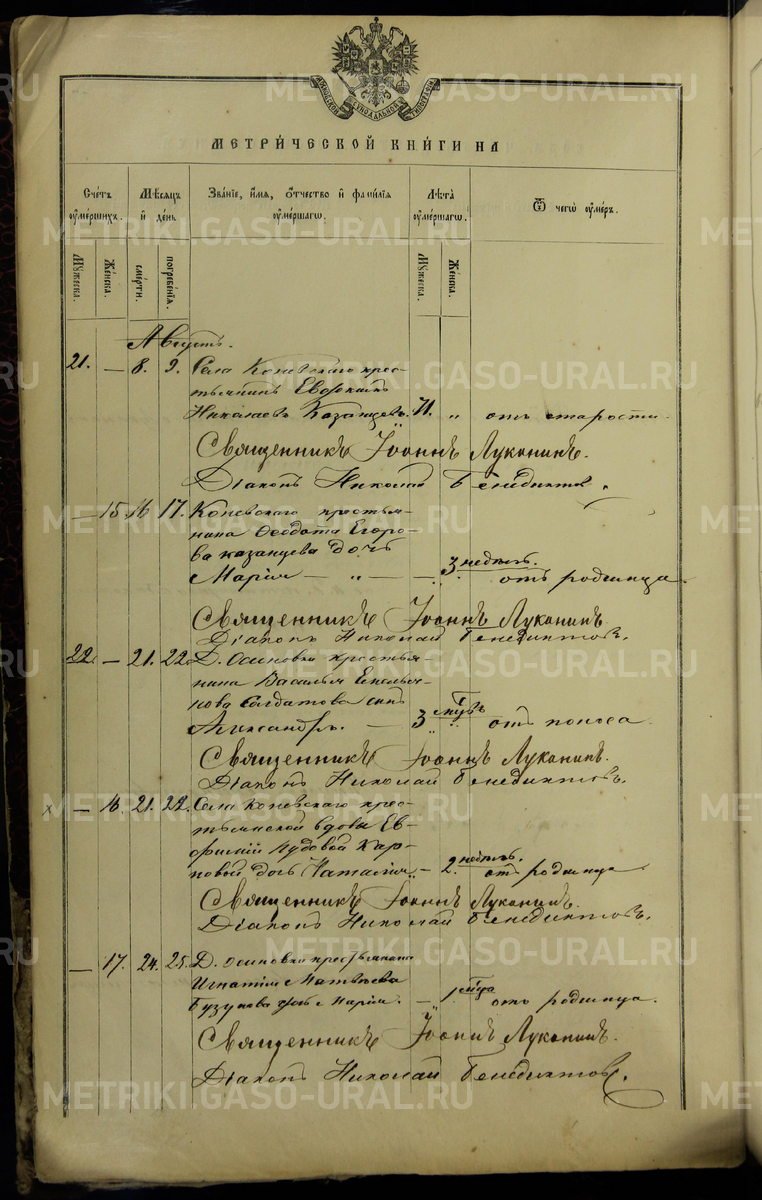 МЕТРИ́ЧЕСКОЙ КНИ́ГИ НА
Сче́тъ ᲂу҆ме́ршихъ.
Мѣ́сяцъ и҆ де́нь
Зва́нїе, и҆́мя, ѻ҆́тчество и҆ фами́лїя ᲂу҆ме́ршагѡ.
Лѣ́та ᲂу҆ме́ршагѡ.
Ѿ чегѡ̀ ᲂу҆́меръ.
Му́жеска.
Же́нска.
сме́рти.
погребе́нїя.
Му́жеска.
Же́нска.
Августъ.
21. — 8. 9. Села Коневскаго крес-
тьянинъ Евфимiй
Николаевъ Казанцевъ. 71. „ отъ старости.
Священникъ Іоаннъ Луканинъ.
Діаконъ Николай Бенедиктов.
— 15. 16 17. Коневскаго крестья-
нина Ѳеодота Егоро-
ва Казанцева дочь
Марія — „ — — 3 недѣль. отъ родимца.
Священникъ Іоаннъ Луканинъ.
Діаконъ Николай Бенедиктовъ.
22. — 21. 22. Д. Осиновки крестья-
нина Василья Емелья-
нова Солдатова сынъ
Александръ. — 3 отъ поноса.
Священникъ Іоаннъ Луканинъ.
Діаконъ Николай Бенедиктовъ.
x — 16. 21. 22. Села Коневскаго крес-
тьянской вдовы Ев-
фимiи Кар-
повой дочь Наталія. — 2. недѣль. отъ родимца
Священникъ Іоаннъ Луканинъ.
Діаконъ Николай Бенедиктовъ.
— 17. 24. 25. Д. Осиновки крестьянина
Игнатія Матвѣева
Бузунова дочь Марія. — 1 отъ родимца.
Священникъ Іоаннъ Луканинъ.
Діаконъ Николай Бенедиктовъ.
METRIKI.GASO-URAL.RU